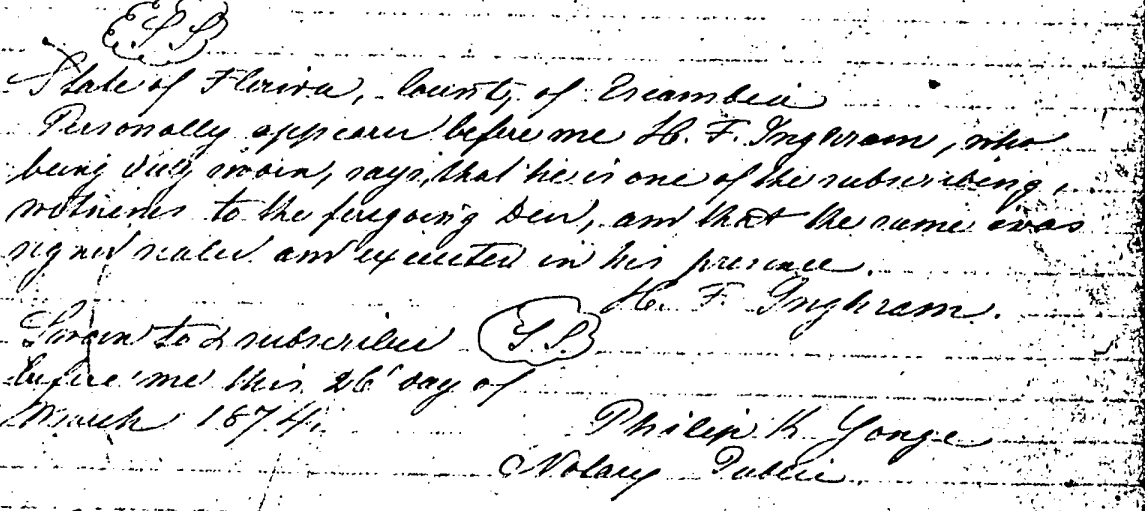 State of Florida, County of Escambia
Personally appeared before me H. F. Inghram, who
being duly sworn, says, that he is one of the subscribing
witnesses to the foregoing Deed, and that the same was
signed sealed and executed in his presence.
H. F. Inghram.
Sworn to & subscribed
before me this 26' day of
March 1874.
Philip K Yonge
Notary Public